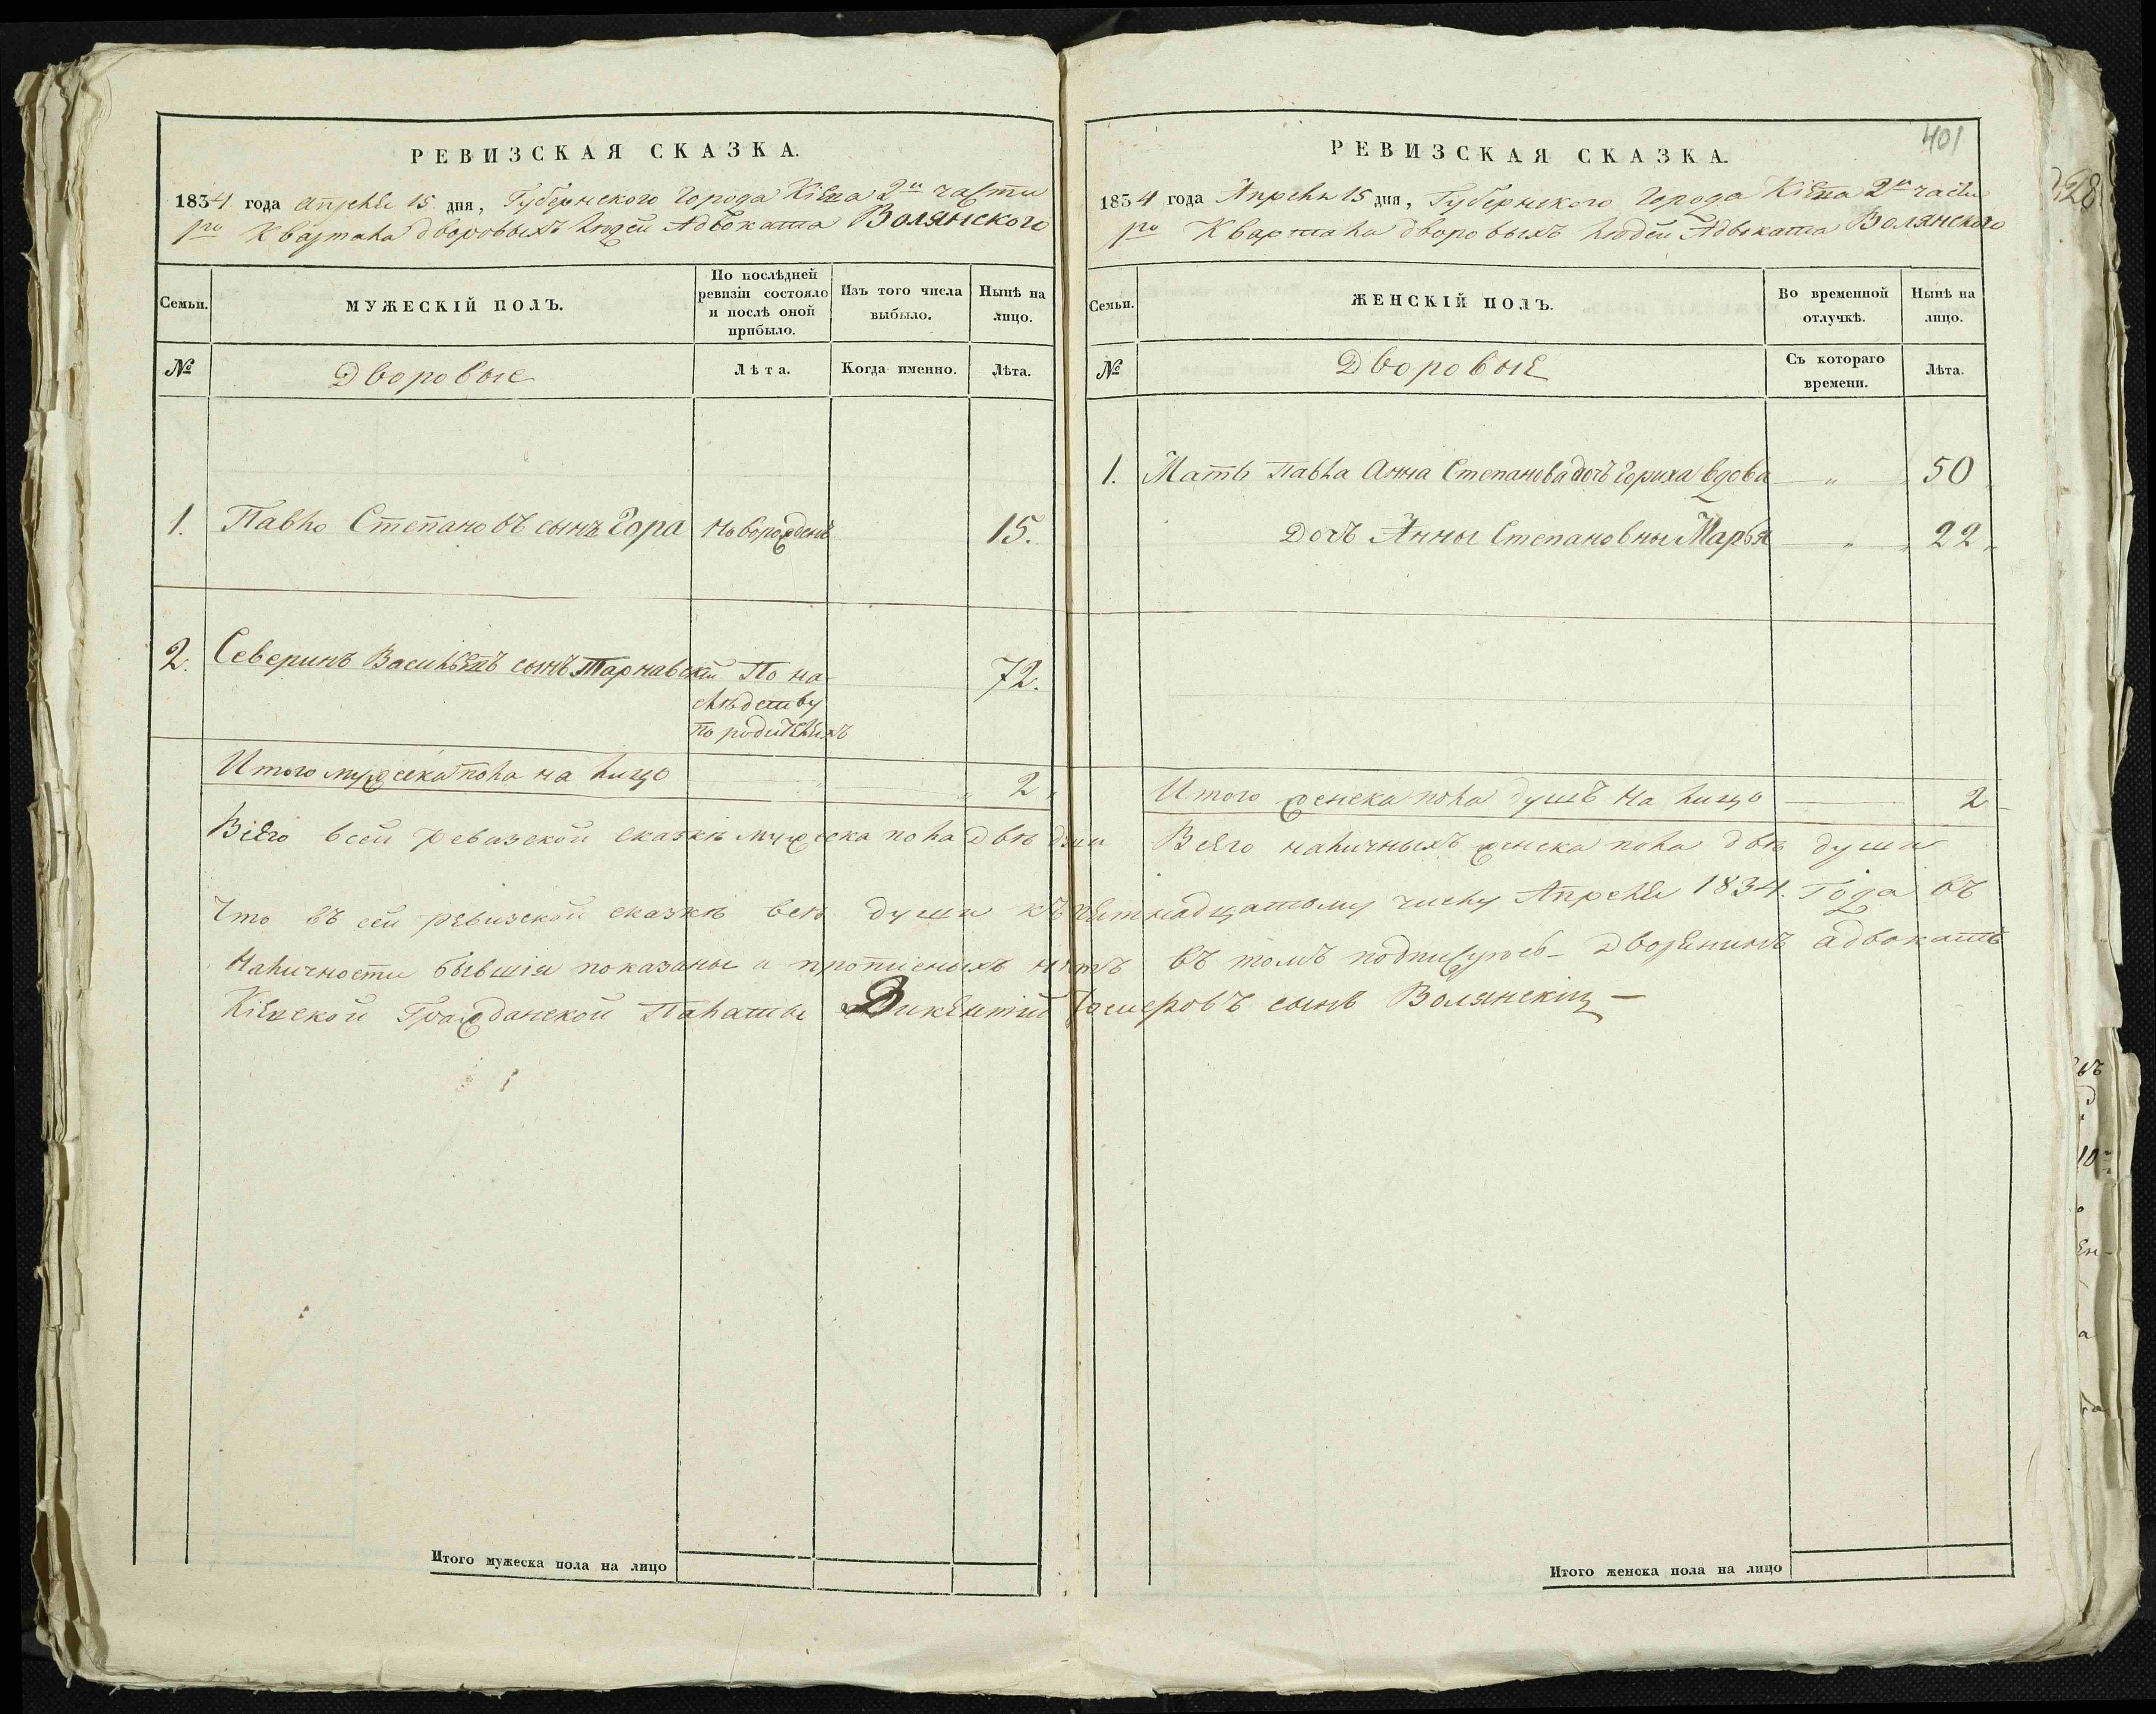 РЕВИЗСКАЯ СКАЗКА.
1834 года апреля 15 дня, Губернского Города Кіева 2й части
1го Квартала дворовыхъ людей Адвоката Волянского
Семьи.
МУЖЕСКІЙ ПОЛЪ.
По послѣдней ревизіи состояло и послѣ оной прибыло.
Изъ того числа выбыло.
Нынѣ на лицо.
№
Дворовые
Лѣта.
Когда именно.
Лѣта.
1. Павло Степановъ сынъ Гора новорожденъ 15.
2. Северинъ Васильевъ сынъ Тарнавскій По на-
слѣдству
по родителяхъ
72.
Итого мужеска пола на лицо 2
Всего всей ревизской сказкѣ мужеска пола двѣ души
РЕВИЗСКАЯ СКАЗКА.
401
1834 года Апрель 15 дня, Губернского Города Кіева 2й части
1го Квартала дворовыхъ людей Адвоката Волянского
Семьи.
ЖЕНСКІЙ ПОЛЪ.
Во временной отлучкѣ.
Нынѣ на лицо.
№
Дворовые
Съ котораго времени.
Лѣта.
1. Мать Павла Анна Степанова дочъ Гориха вдова " 50
Дочъ Анны Степановны Марья " 22
Итого женска пола душъ на лицо 2
Всего наличныхъ женска пола двѣ души
Что въ сей ревизской сказкѣ всѣ души къ пятнадцатому числу Апреля 1834. Года въ
наличности бывшія показаны и прописныхъ нѣтъ въ томъ подписуюсь Дворянинъ адвокатъ
Кіевской Гражданской Палаты Викентій сынъ Волянскій
Итого мужеска пола на лицо
Итого женска пола на лицо
28